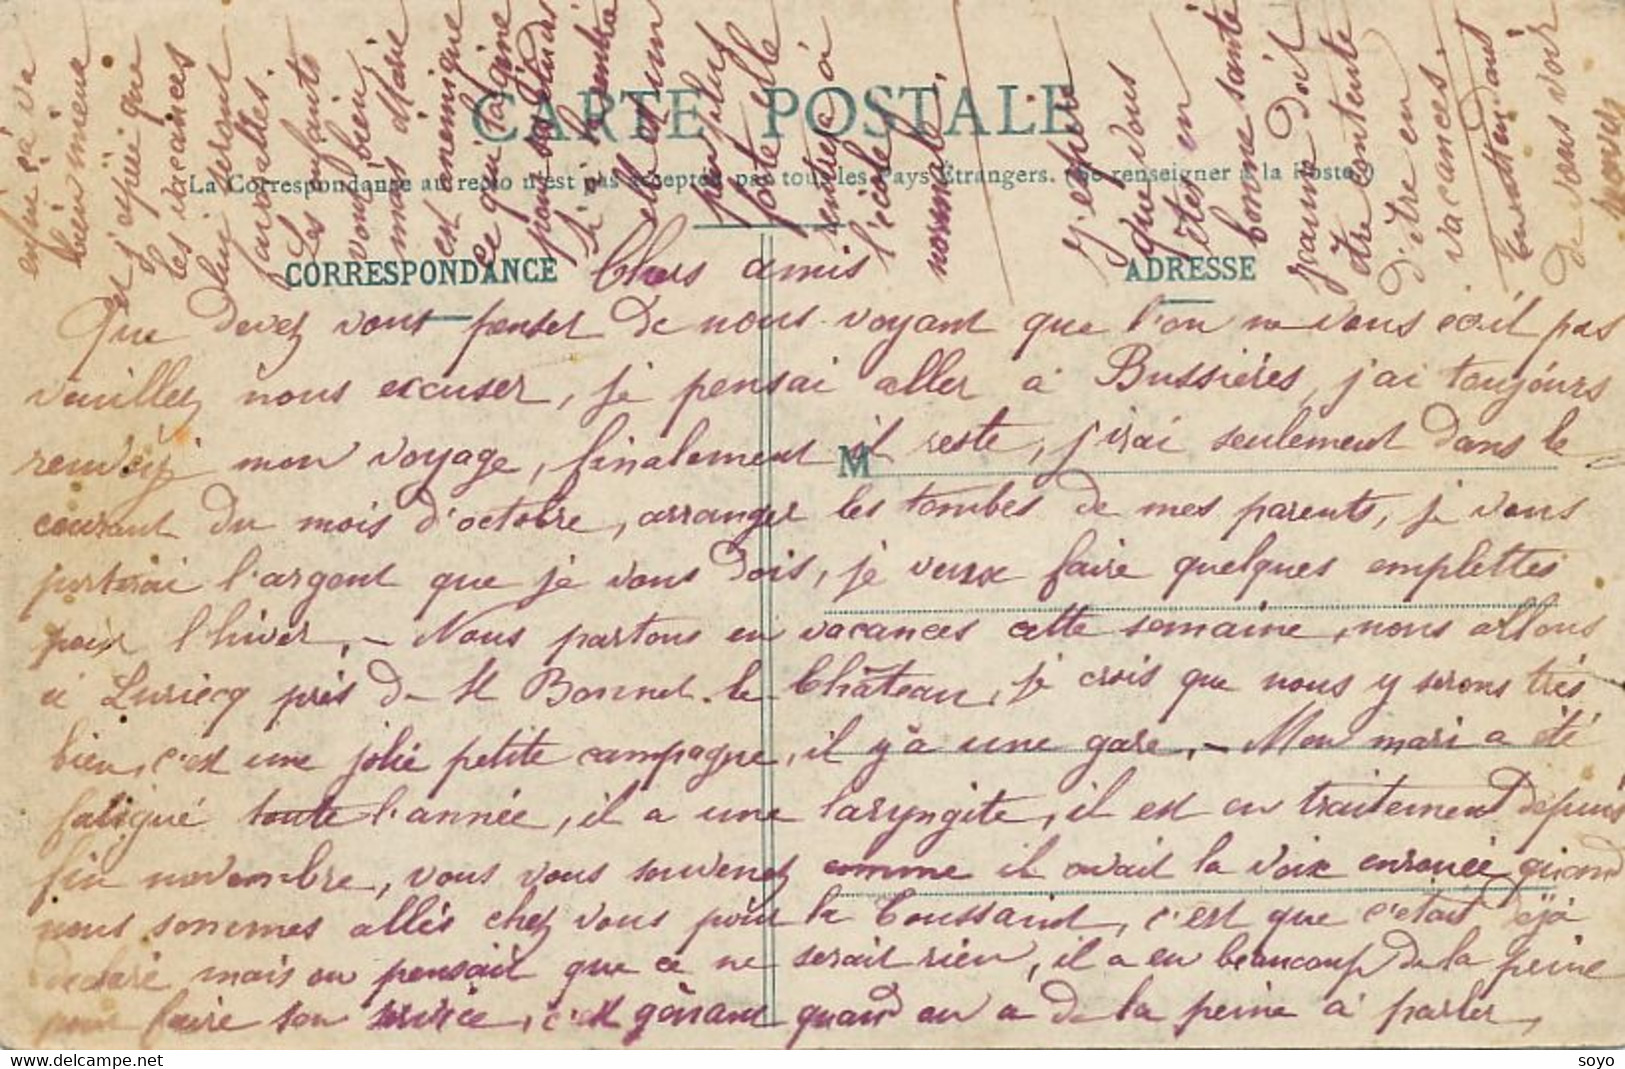 CARTE POSTALE
(La Correspondance au recto n'est pas acceptée par tous les Pays Étrangers. (Se renseigner à la Poste.)
CORRESPONDANCE
ADRESSE
M
Chers amis
Que devez vous penser de nous voyant que l'on ne vous écrit pas
veuillez nous excuser, je pensai aller à Bussières, j'ai toujours
renvoyé mon voyage, finalement il reste, j'irai seulement dans le
courant du mois d'octobre, arranger les tombes de mes parents, je vous
porterai l'argent que je vous dois, je veux faire quelques emplettes
pour l'hiver, – Nous partons en vacances cette semaine, nous allons
à Luriecq près de St Bonnet le Château, je crois que nous y serons très
bien, c'est une jolie petite campagne, il y a une gare, – Mon mari a été
fatigué toute l'année, il a une laryngite, il est en traitement depuis
fin novembre, vous vous souvenez comme il avait la voix enrouée quand
nous sommes allés chez vous pour la Toussaint, c'est que c'était déjà
déclaré, mais on pensait que ce ne serait rien, il a eu beaucoup de la peine
pour faire son service, c'est gênant quand on a de la peine à parler,
enfin çà va
bien mieux
et j'espère que
les vacances
lui seront
favorables.
Les enfants
vont bien
mais Marie
est anémique
ce qui la gêne
pour ses études
si la rentrée
elle est un
peu plus
forte elle
entrera à
l'école
normale,
J'espère
que vous
êtes en
bonne santé
Jeanne doit
être contente
d'être en
vacances.
En attendant
de vous voir